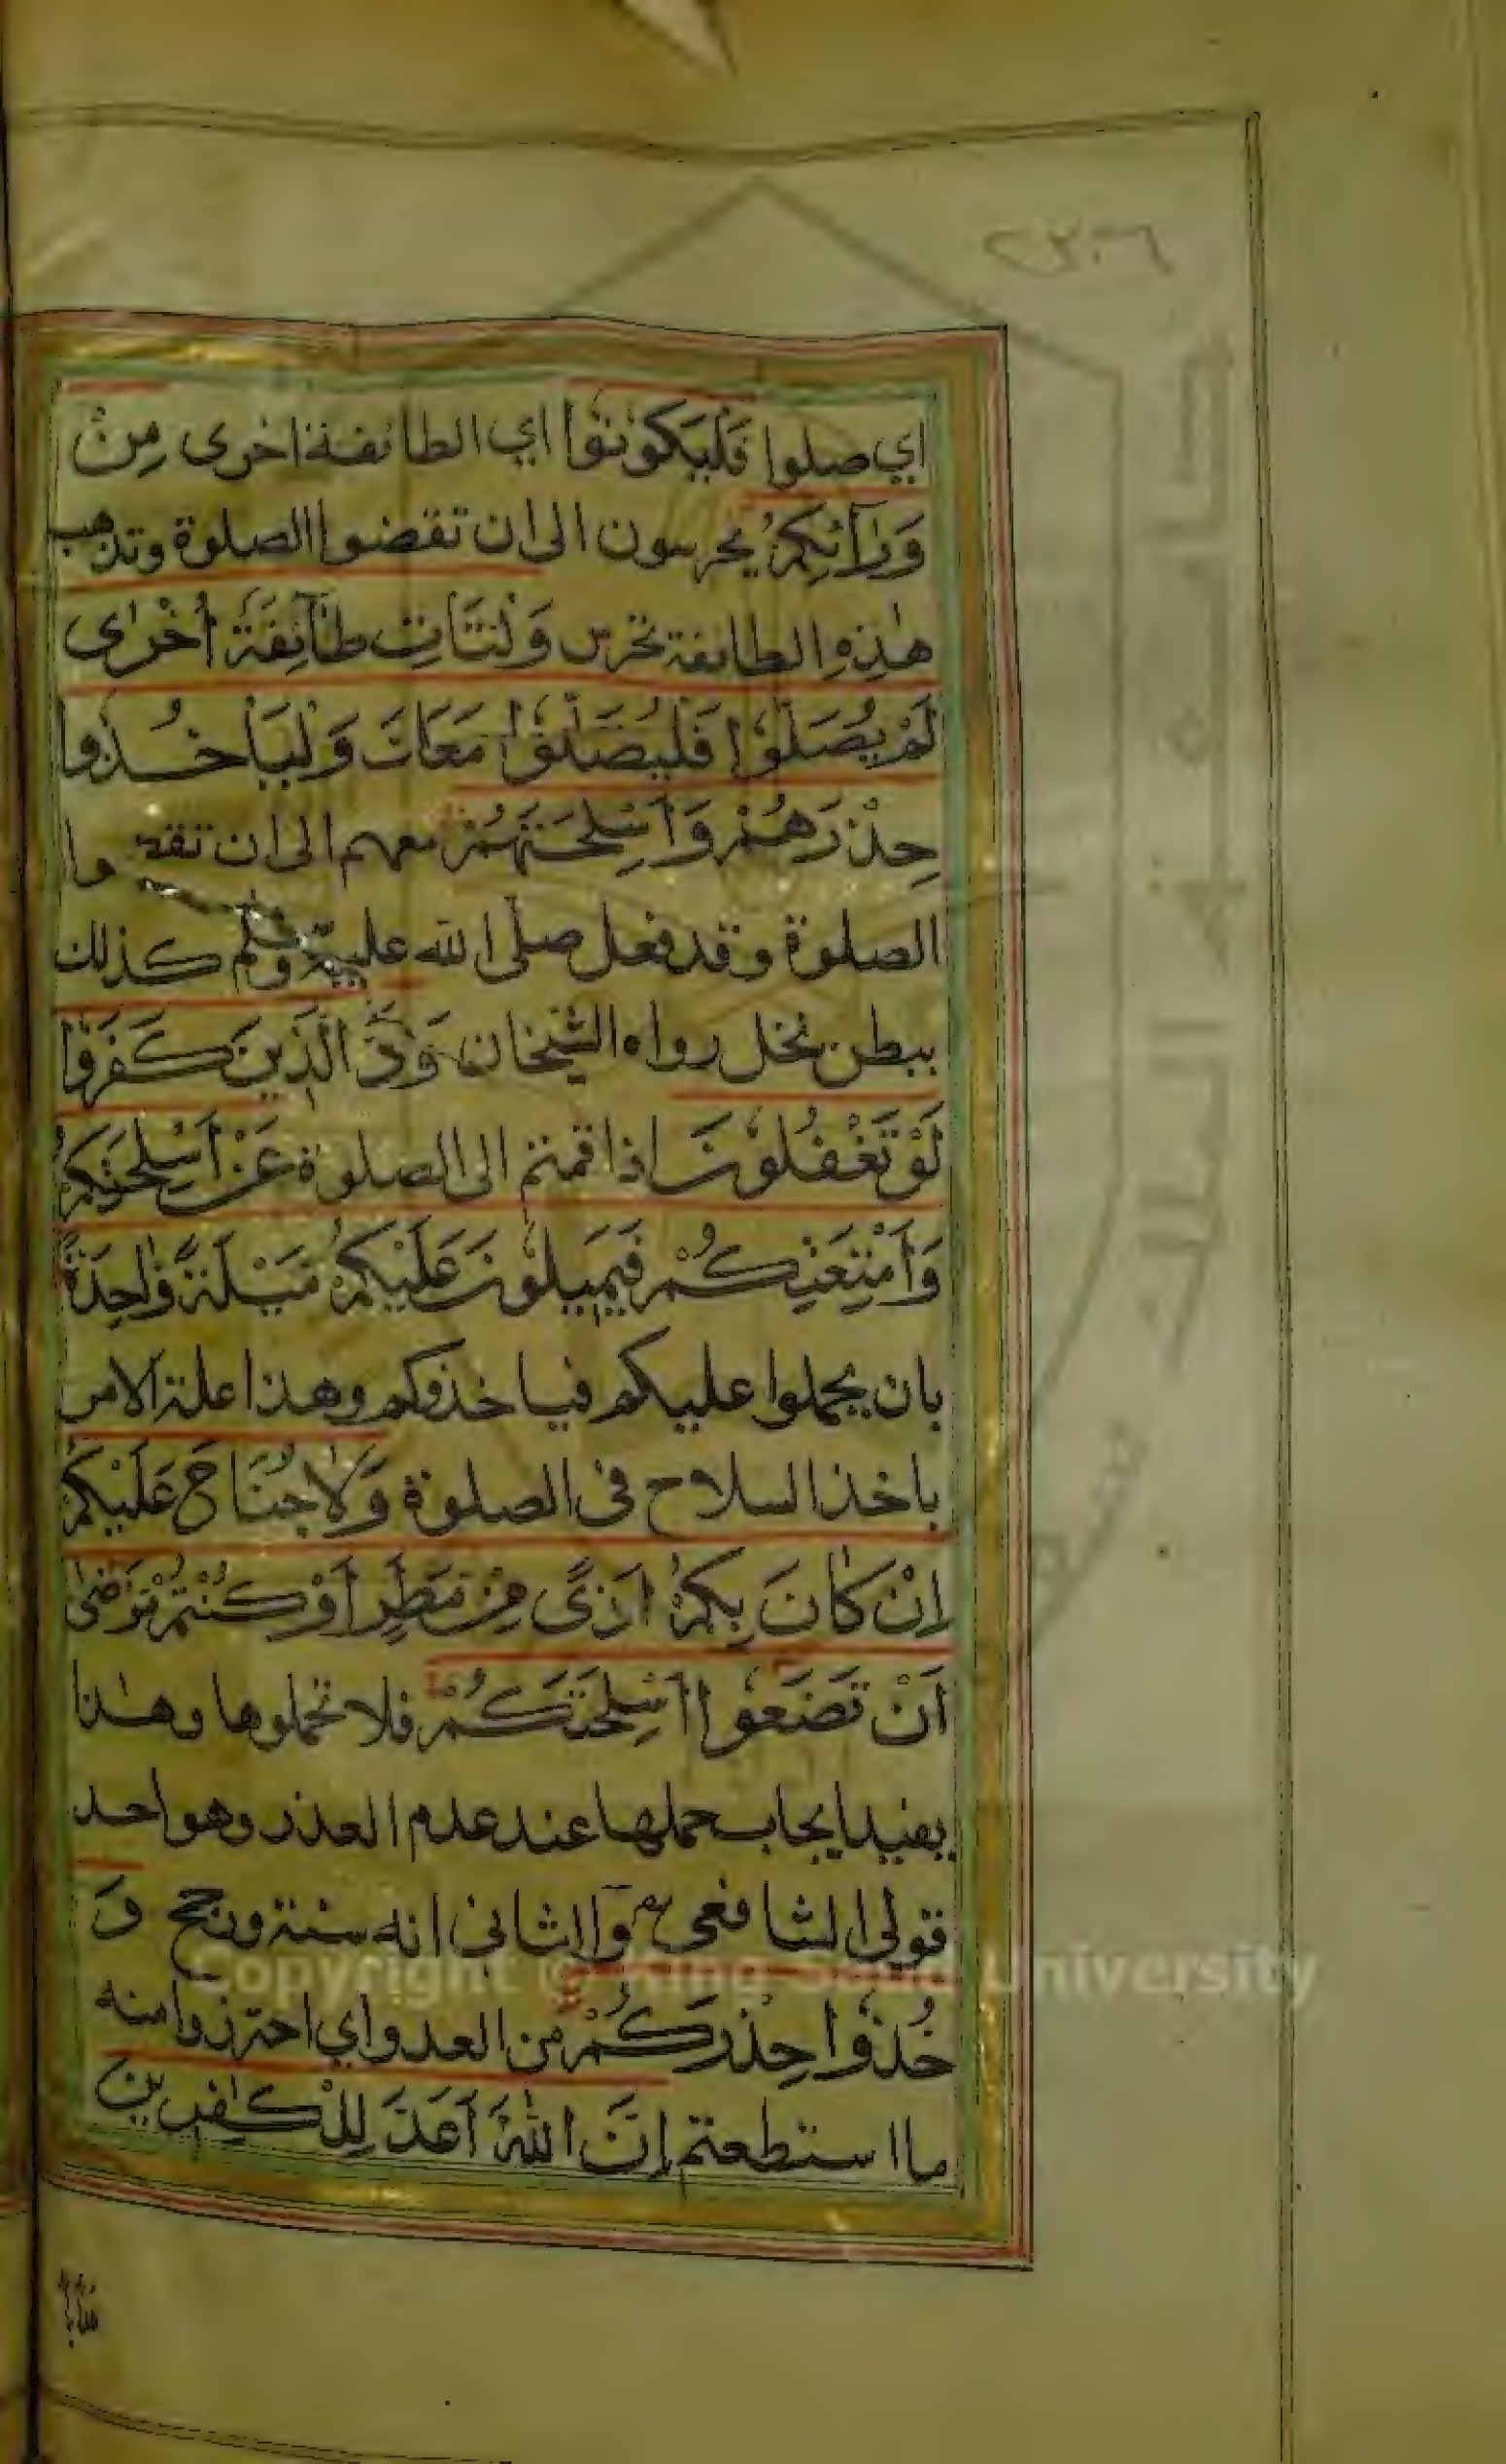 ٢٣٠٦
اي صلوا فَلْيَكُونُوا اي الطائفة اخرى مِنْ
وَرَآئِكُمْ يحرسون الى ان تقضوا الصلوة وتذهب
هذه الطائفة تحرس وَلْتَأْتِ طَآئِفَةٌ أُخْرٰى
لَمْ يُصَلُّوْا فَلْيُصَلُّوْا مَعَكَ وَلْيَأْخُذُوا
حِذْرَهُمْ وَاَسْلِحَتَهُمْ معهم الى ان تقضوا
الصلوة وقد فعل صلى الله عليه وسلم كذلك
ببطن نخل رواه الشيخان وَدَّ الَّذِينَ كَفَرُوْا
لَوْ تَغْفُلُوْنَ اذا قمتم الى الصلوة عَنْ اَسْلِحَتِكُمْ
وَاَمْتِعَتِكُمْ فَيَمِيلُوْنَ عَلَيْكُمْ مَيْلَةً وَاحِدَةً
بان يحملوا عليكم فياخذوكم وهذا علة الامر
باخذ السلاح فى الصلوة وَلَا جُنَاحَ عَلَيْكُمْ
اِنْ كَانَ بِكُمْ اَذًى مِنْ مَطَرٍ اَوْ كُنْتُمْ مَرْضٰى
اَنْ تَضَعُوْا اَسْلِحَتَكُمْ فلا تحملوها وهذا
يفيد ايجاب حملها عند عدم العذر وهو احد
قولي الشافعي والثاني انه سنة ورجح وَ
خُذُوْا حِذْرَكُمْ من العدو اي احترزوا منه
ما استطعتم اِنَّ اللّٰهَ اَعَدَّ لِلْكٰفِرِينَ
عذابا
Copyright © King Saud University